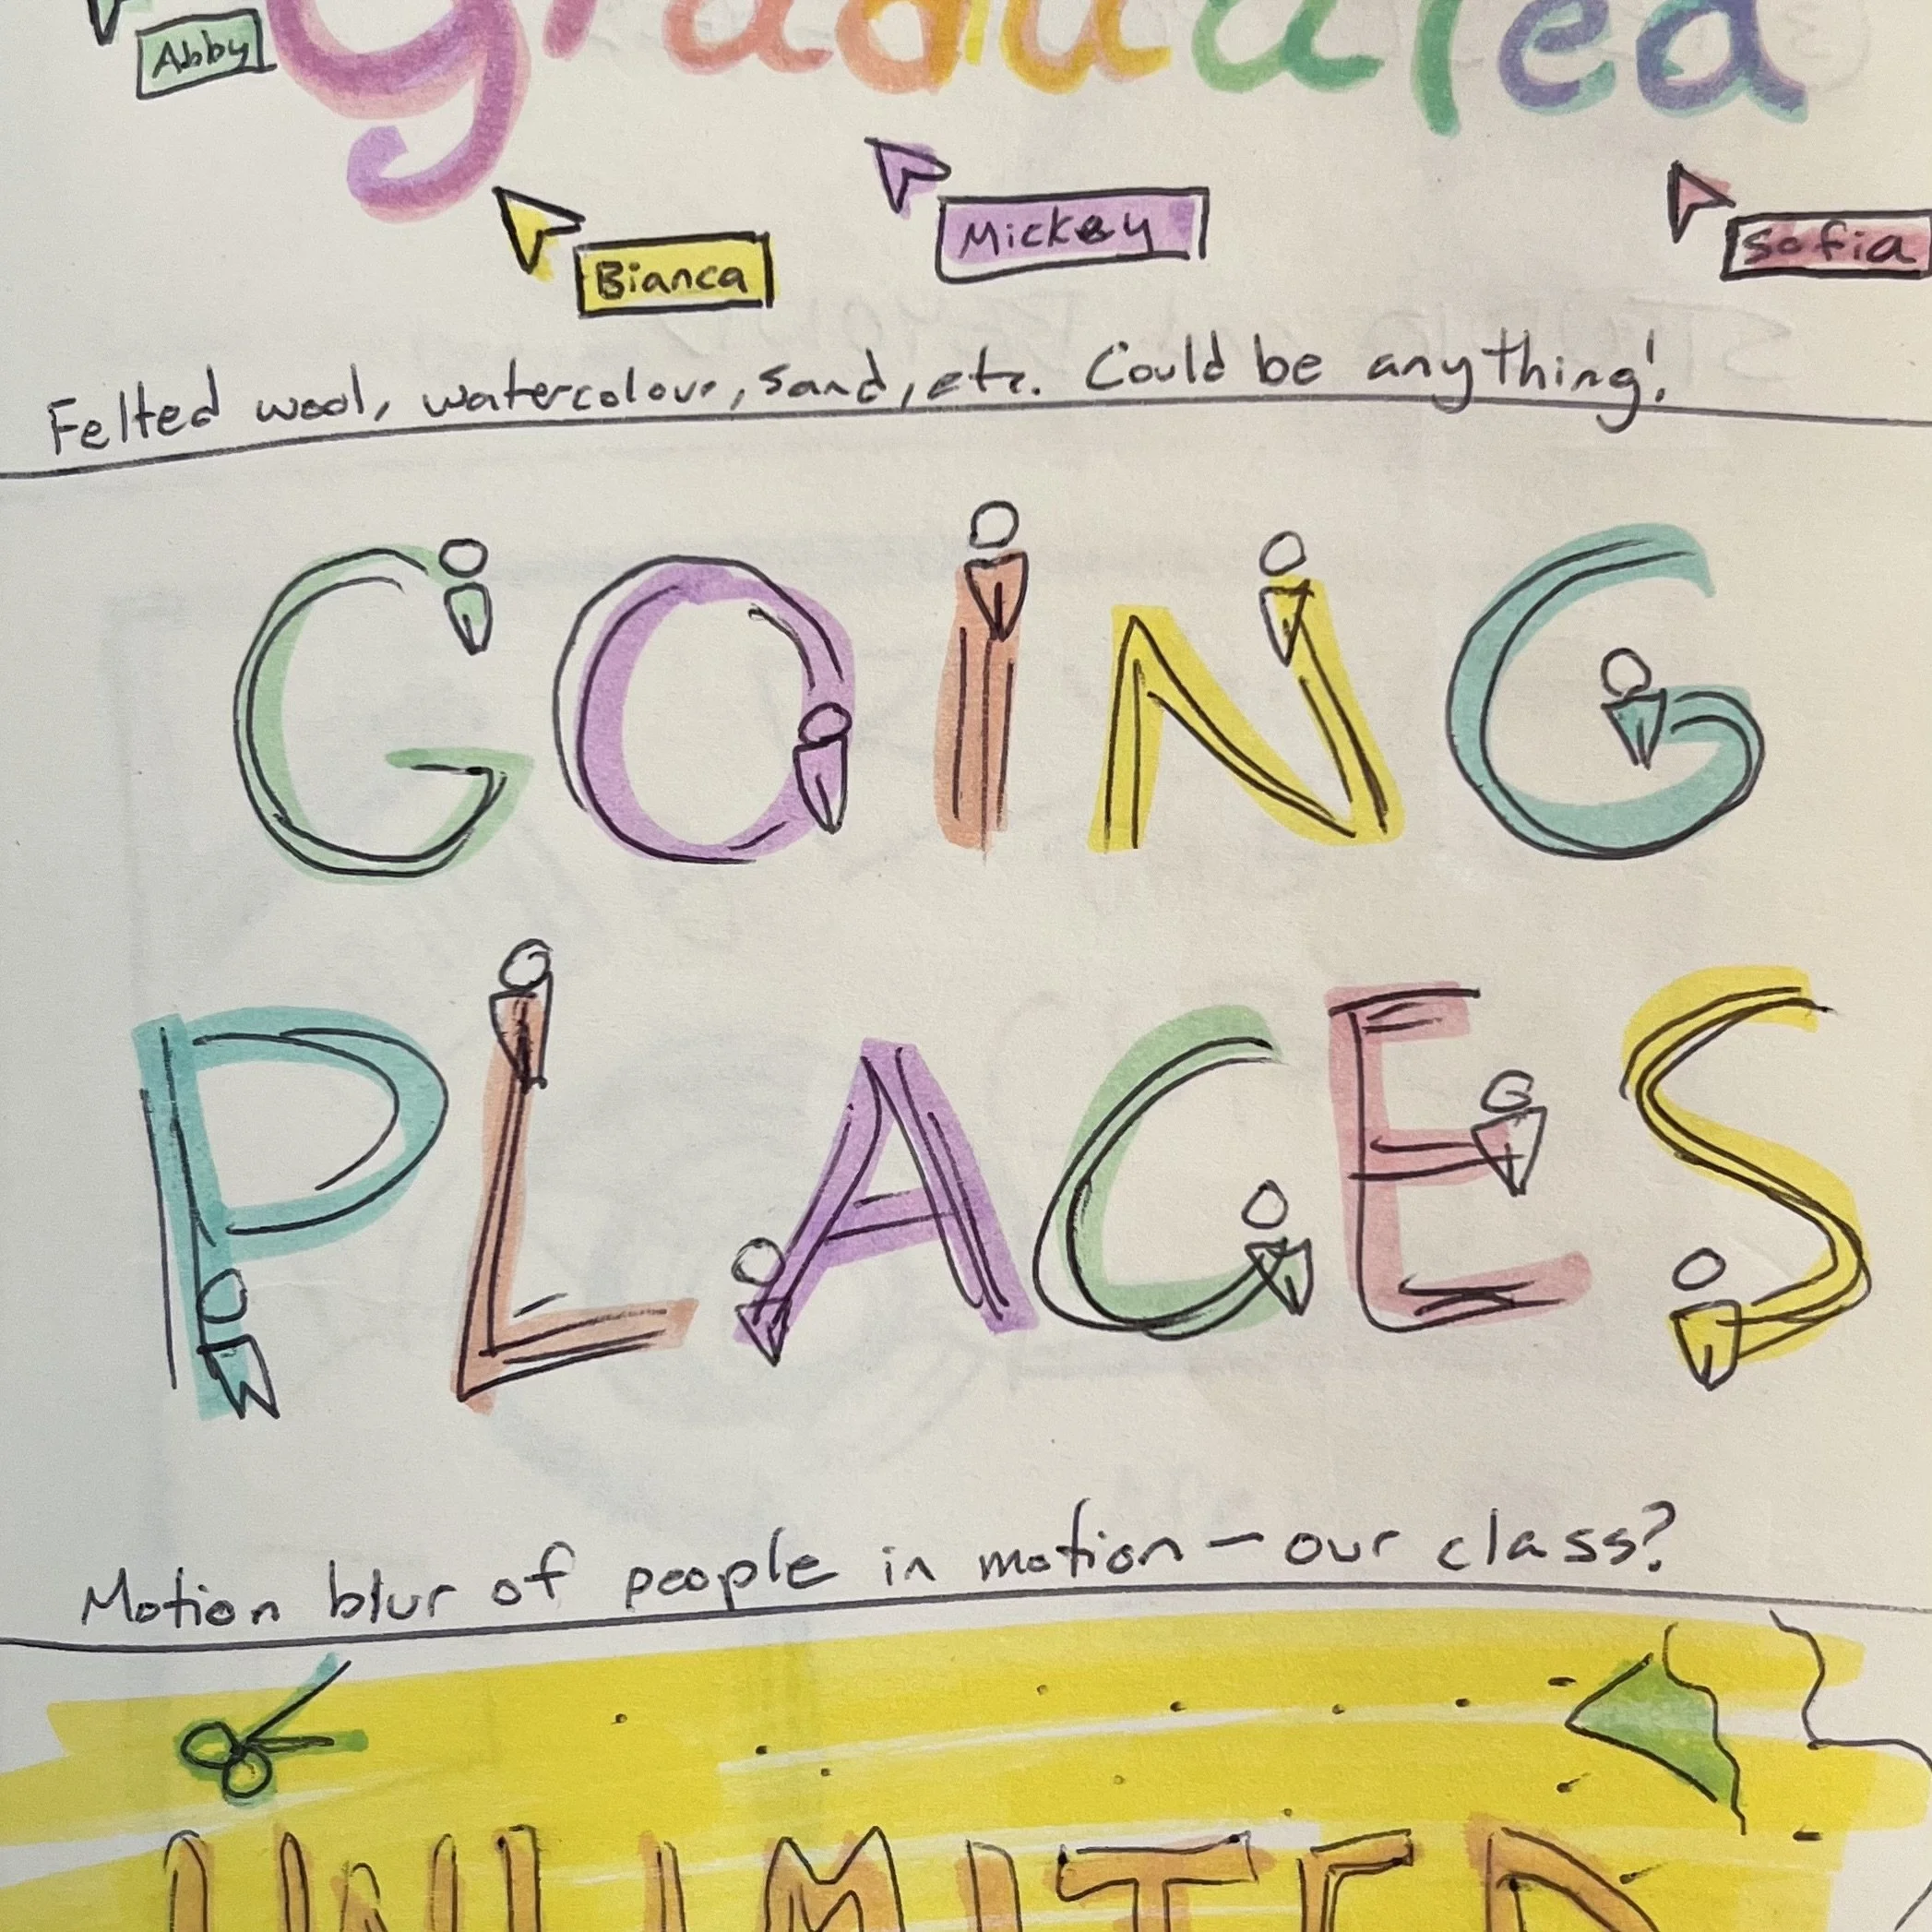 graduated
Abby
Mickey
Sofia
Bianca
Felted wool, watercolour, sand, etc. Could be anything!
GOING
PLACES
Motion blur of people in motion — our class?
UNLIMITED